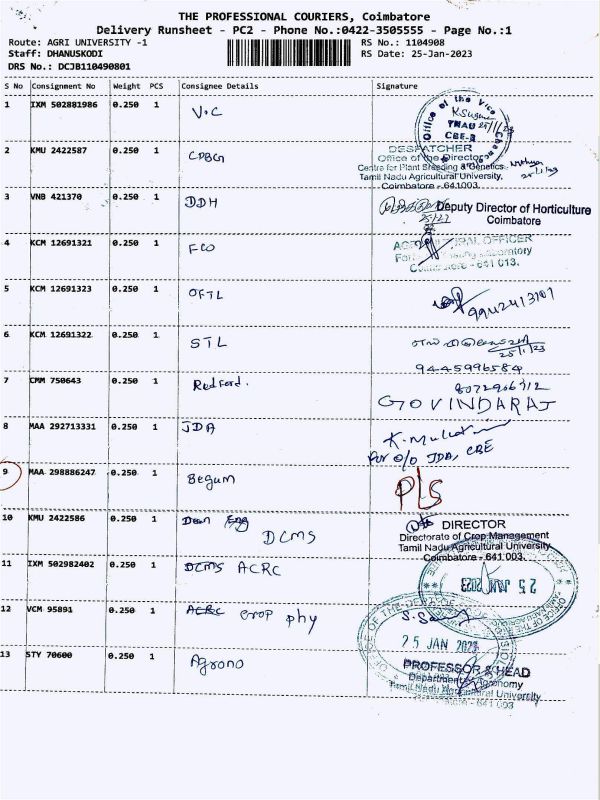 THE PROFESSIONAL COURIERS, Coimbatore
Delivery Runsheet - PC2 - Phone No.:0422-3505555 - Page No.:1
Route: AGRI UNIVERSITY -1 RS No.: 1104908
Staff: DHANUSKODI RS Date: 25-Jan-2023
DRS No.: DCJB110490801
S No Consignment No Weight PCS Consignee Details Signature
1 IXM 502881986 0.250 1 V.C
Office of the Vice
TNAU 25/1/23
CBE-3
2 KMU 2422587 0.250 1 CPBG
DESPATCHER
Office of the Director
Centre for Plant Breeding & Genetics
Tamil Nadu Agricultural University,
Coimbatore - 641003.
3 VNB 421370 0.250 1 DDH
Deputy Director of Horticulture
Coimbatore
4 KCM 12691321 0.250 1 FCO
AGRICULTURAL OFFICER
Laboratory
Coimbatore - 641 013.
5 KCM 12691323 0.250 1 OFTL
9942413101
6 KCM 12691322 0.250 1 STL
25/1/23
9445996584
7 CMM 750643 0.250 1 Redford.
8072906912
GOVINDARAJ
8 MAA 292713331 0.250 1 JDA
for o/o JDA, CBE
9 MAA 298886247 0.250 1 Begum PLS
10 KMU 2422586 0.250 1 Dean Eng DCMS
DIRECTOR
Directorate of Crop Management
Tamil Nadu Agricultural University
Coimbatore - 641 003.
11 IXM 502982402 0.250 1 DCMS ACRC
25 JAN 2023
12 VCM 95891 0.250 1 ACRC crop phy
25 JAN 2023
13 STY 70600 0.250 1 Agrono
PROFESSOR & HEAD
Department of Agronomy
Tamil Nadu Agricultural University
641 003